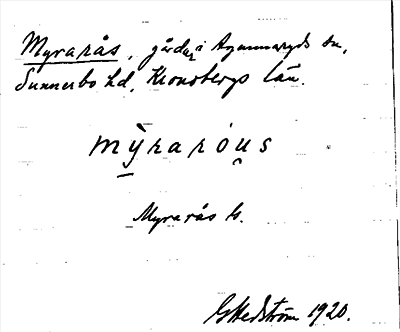 Myrarås, gårdar i Agunnaryds sn,
Sunnerbo hd, Kronobergs län.
mỳraróu̯s
Myrarås h.
G Hedström 1920.